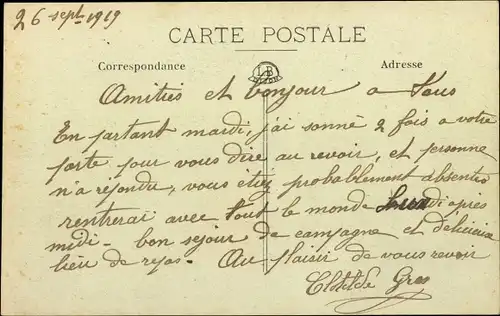 26 sept 1919
CARTE POSTALE
Correspondance
LB
Adresse
Amitiés et bonjour a Vous
En partant mardi, j'ai sonné 2 fois a votre
porte pour vous dire au revoir, et personne
n'a répondu, vous étiez probablement absentes
rentrerai avec tout le monde Lundi après
midi - bon sejour de campagne et délicieux
lieu de repos. Au plaisir de vous revoir
Clotilde Gres